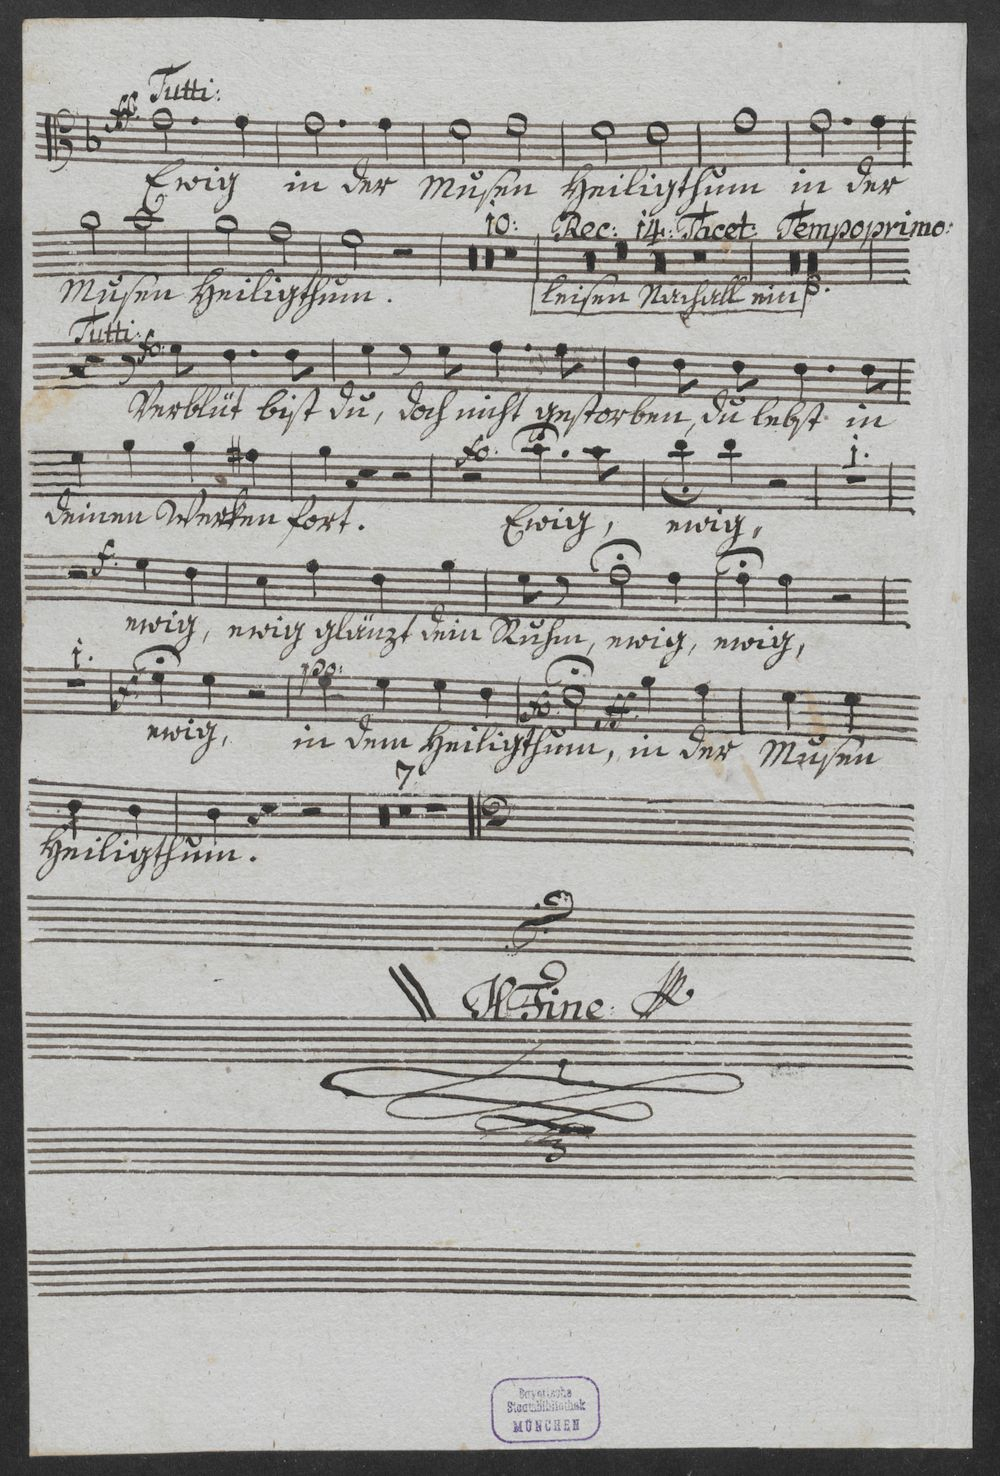 Tutti:
ff.
Ewig in der Musen Heiligthum in der
10: Rec: 14: Tacet: Tempo primo:
Musen Heiligthum. leisen Nachall ein
Tutti: fo.
Verblüt bist du, doch nicht gestorben, du lebst in
fo. 1.
deinen Werken fort. Ewig, ewig,
f.
ewig, ewig glänzt dein Ruhm, ewig, ewig,
1. po:
ewig, in dem Heiligthum, in der Musen
7
Heiligthum.
Il Fine:
Bayerische
Staatsbibliothek
MÜNCHEN